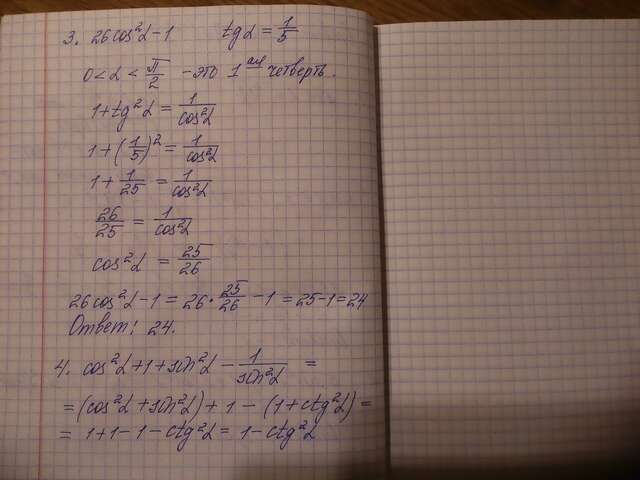 3. 26cos²α-1 tgα = 1/5
0<α<π/2 - это 1ая четверть.
1+tg²α = 1/cos²α
1+(1/5)² = 1/cos²α
1+1/25 = 1/cos²α
26/25 = 1/cos²α
cos²α = 25/26
26cos²α-1 = 26·25/26 -1 = 25-1=24
Ответ: 24.
4. cos²α+1+sin²α - 1/sin²α =
=(cos²α+sin²α)+1-(1+ctg²α)=
= 1+1-1-ctg²α = 1-ctg²α